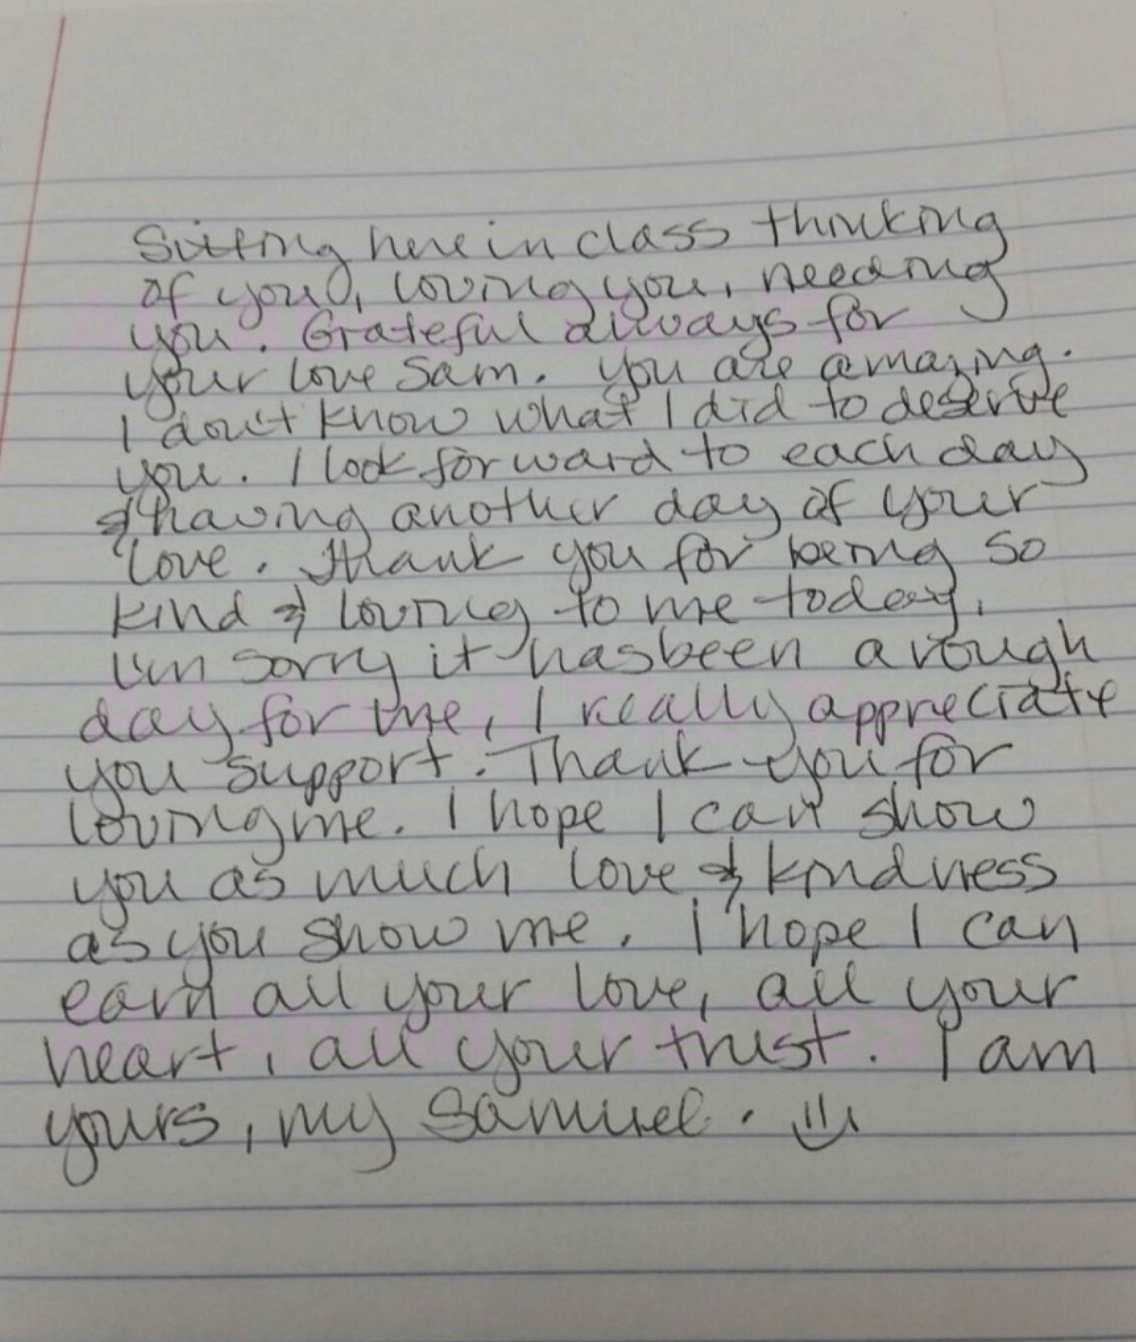 Sitting here in class thinking
of you, loving you, needing
you. Grateful always for
your love Sam. You are amazing.
I don't know what I did to deserve
you. I look forward to each day
& having another day of your
love. Thank you for being so
kind & loving to me today.
I'm sorry it has been a rough
day for me, I really appreciate
you support. Thank you for
loving me. I hope I can show
you as much love & kindness
as you show me. I hope I can
earn all your love, all your
heart, all your trust. I am
yours, my Samuel.